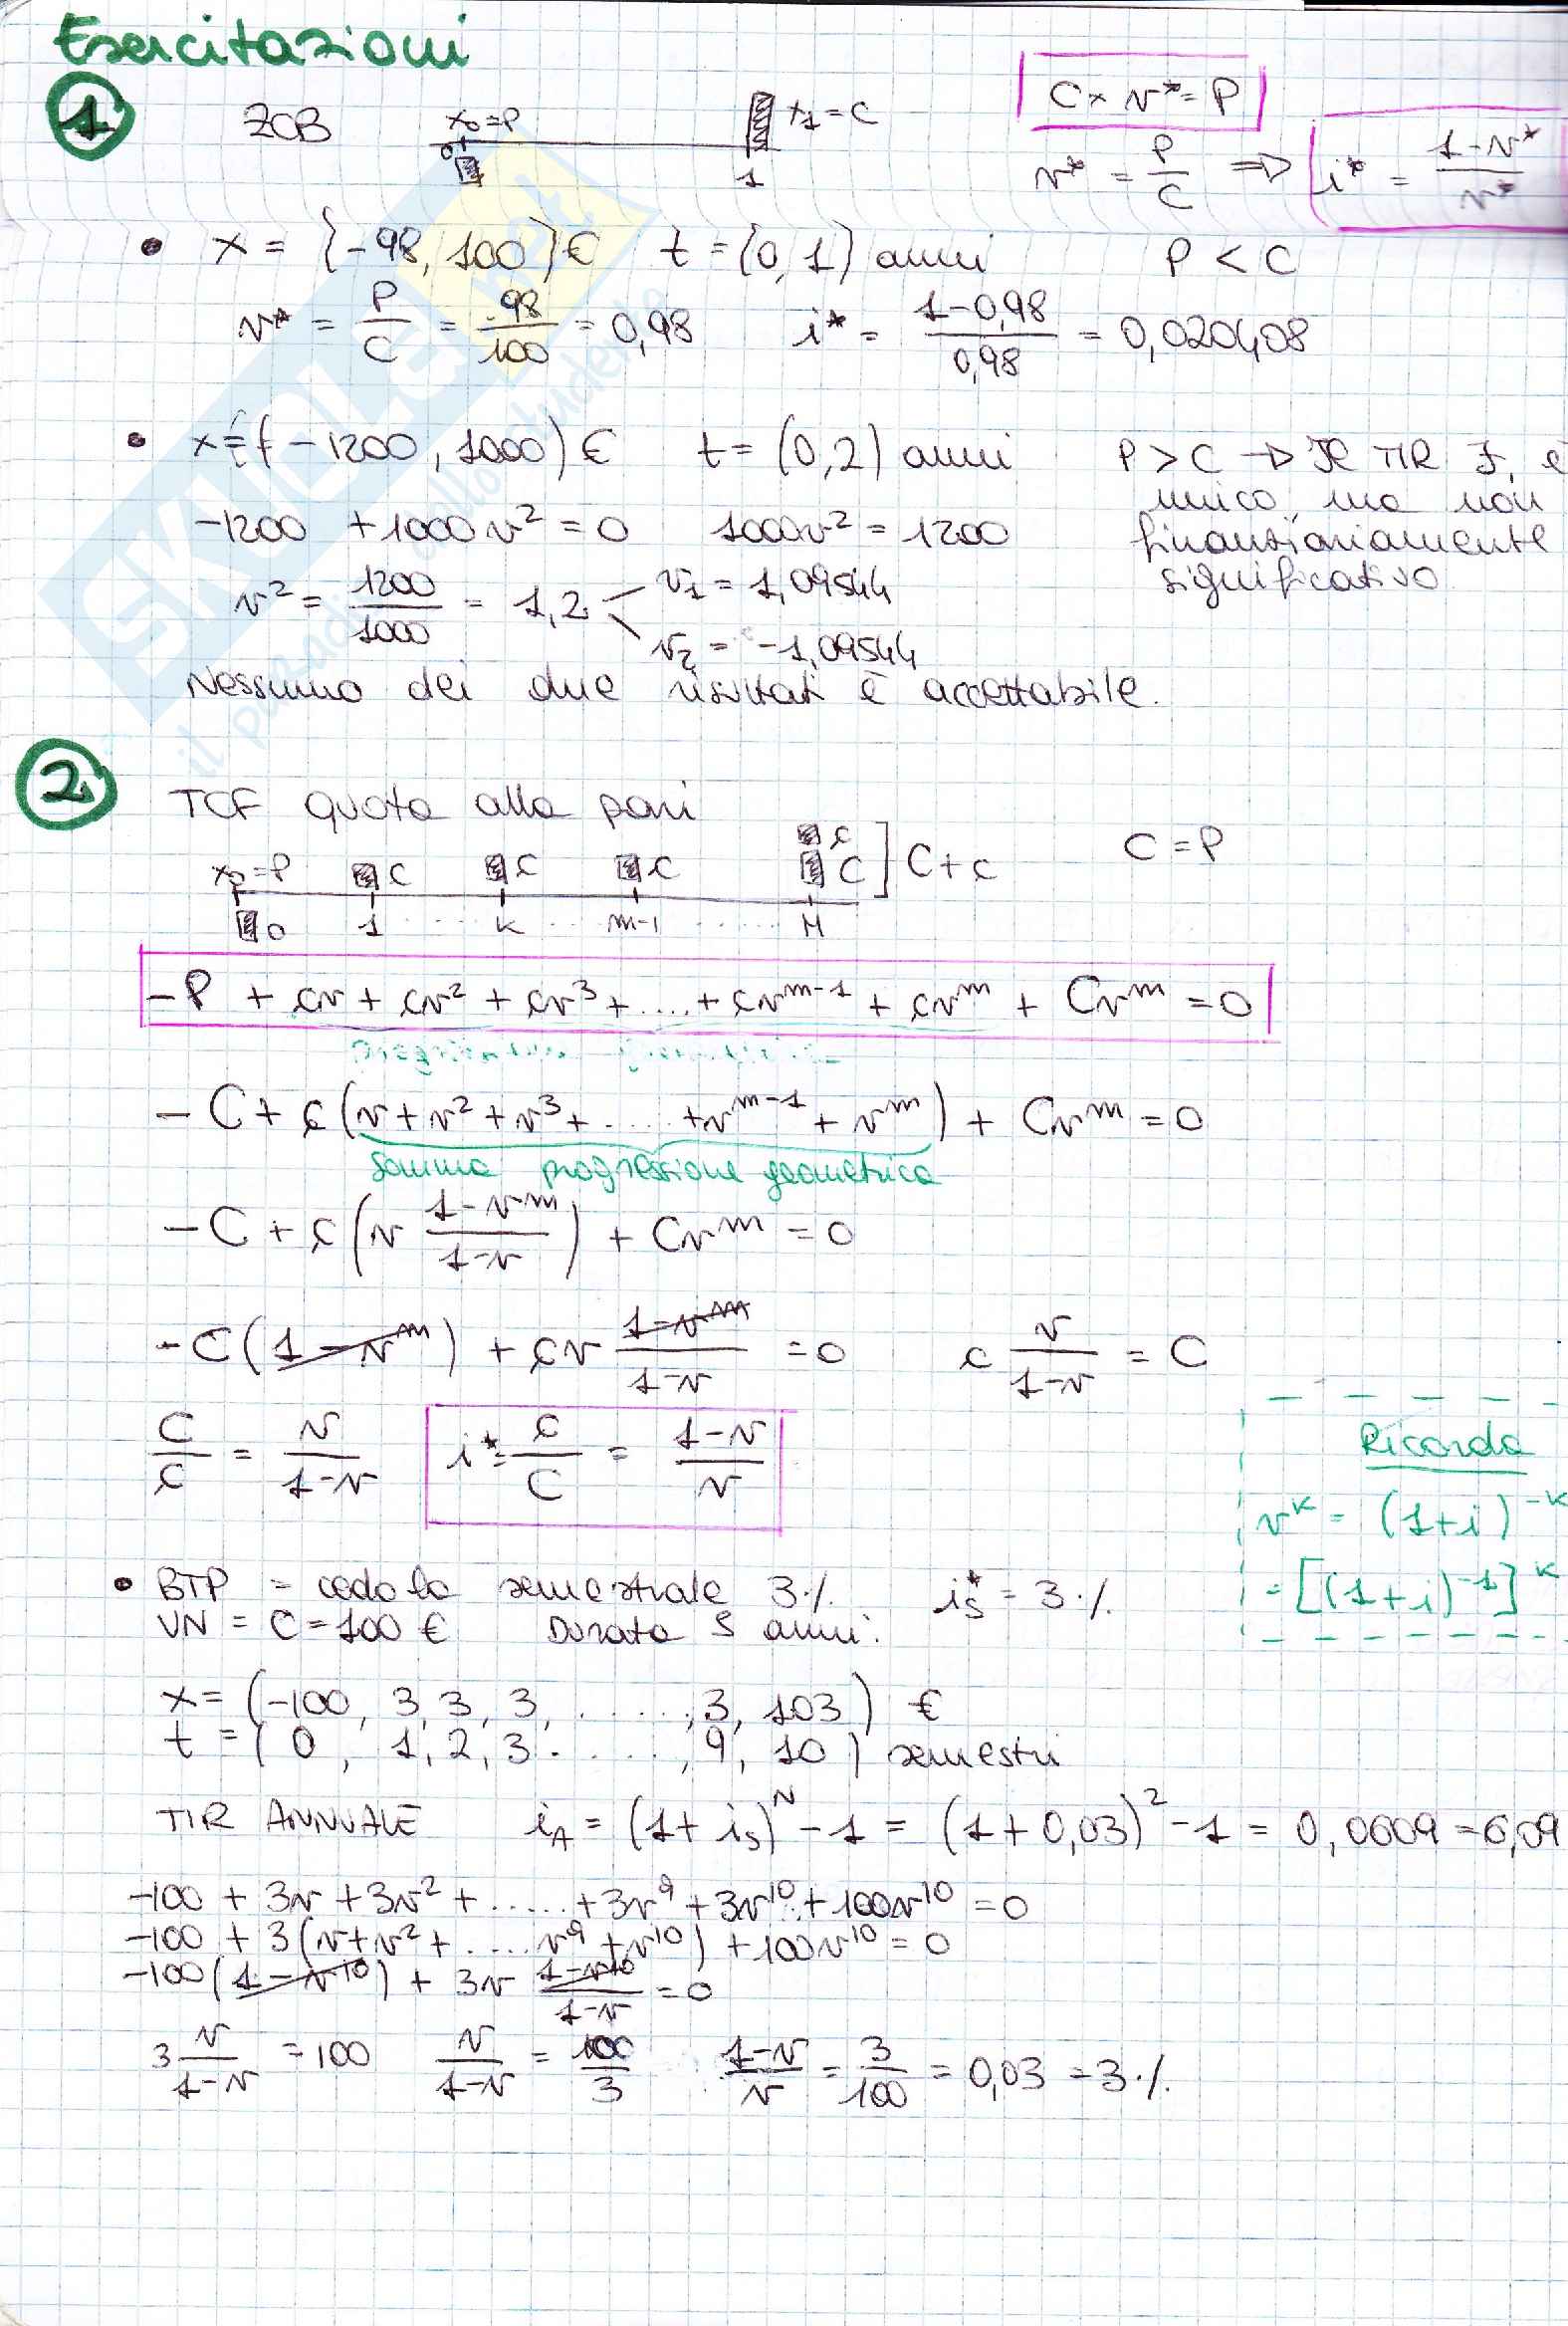 Esercitazioni
1 ZCB x₀=P x₁=C C × v* = P
0 1 v* = P/C ⇒ i* = (1-v*)/v*
• x = {-98, 100} € t = (0, 1) anni P < C
v* = P/C = 98/100 = 0,98 i* = (1-0,98)/0,98 = 0,020408
• x = (-1200, 1000) € t = (0,2) anni P > C → Il TIR ∃, è
unico, ma non
finanziariamente
significativo
-1200 + 1000v² = 0 1000v² = 1200
v² = 1200/1000 = 1,2 v₁ = 1,09544
v₂ = -1,09544
Nessuno dei due risultati è accettabile.
2 TCF quota alla pari
x₀=P c c c c C ] C + c C = P
0 1 .... k ... m-1 ...... M
-P + cv + cv² + cv³ + .... + cv^(m-1) + cv^m + Cv^m = 0
-C + c(v + v² + v³ + .... + v^(m-1) + v^m) + Cv^m = 0
somma progressione geometrica
-C + c(v (1-v^m)/(1-v)) + Cv^m = 0
-C(1-v^m) + cv (1-v^m)/(1-v) = 0 c v/(1-v) = C
C/c = v/(1-v) i* = c/C = (1-v)/v
Ricorda
v^k = (1+i)^-k
= [(1+i)^-1]^k
• BTP = cedola semestrale 3% i*s = 3%
VN = C = 100 € Durata 5 anni.
x = (-100, 3, 3, 3, ....., 3, 103) €
t = (0, 1, 2, 3 ....., 9, 10) semestri
TIR ANNUALE iA = (1 + is)^N - 1 = (1 + 0,03)² - 1 = 0,0609 = 6,09
-100 + 3v + 3v² + ..... + 3v⁹ + 3v¹⁰ + 100v¹⁰ = 0
-100 + 3(v + v² + .... v⁹ + v¹⁰) + 100v¹⁰ = 0
-100(1-v¹⁰) + 3v (1-v¹⁰)/(1-v) = 0
3 v/(1-v) = 100 v/(1-v) = 100/3 (1-v)/v = 3/100 = 0,03 = 3%
SKUOLA.net